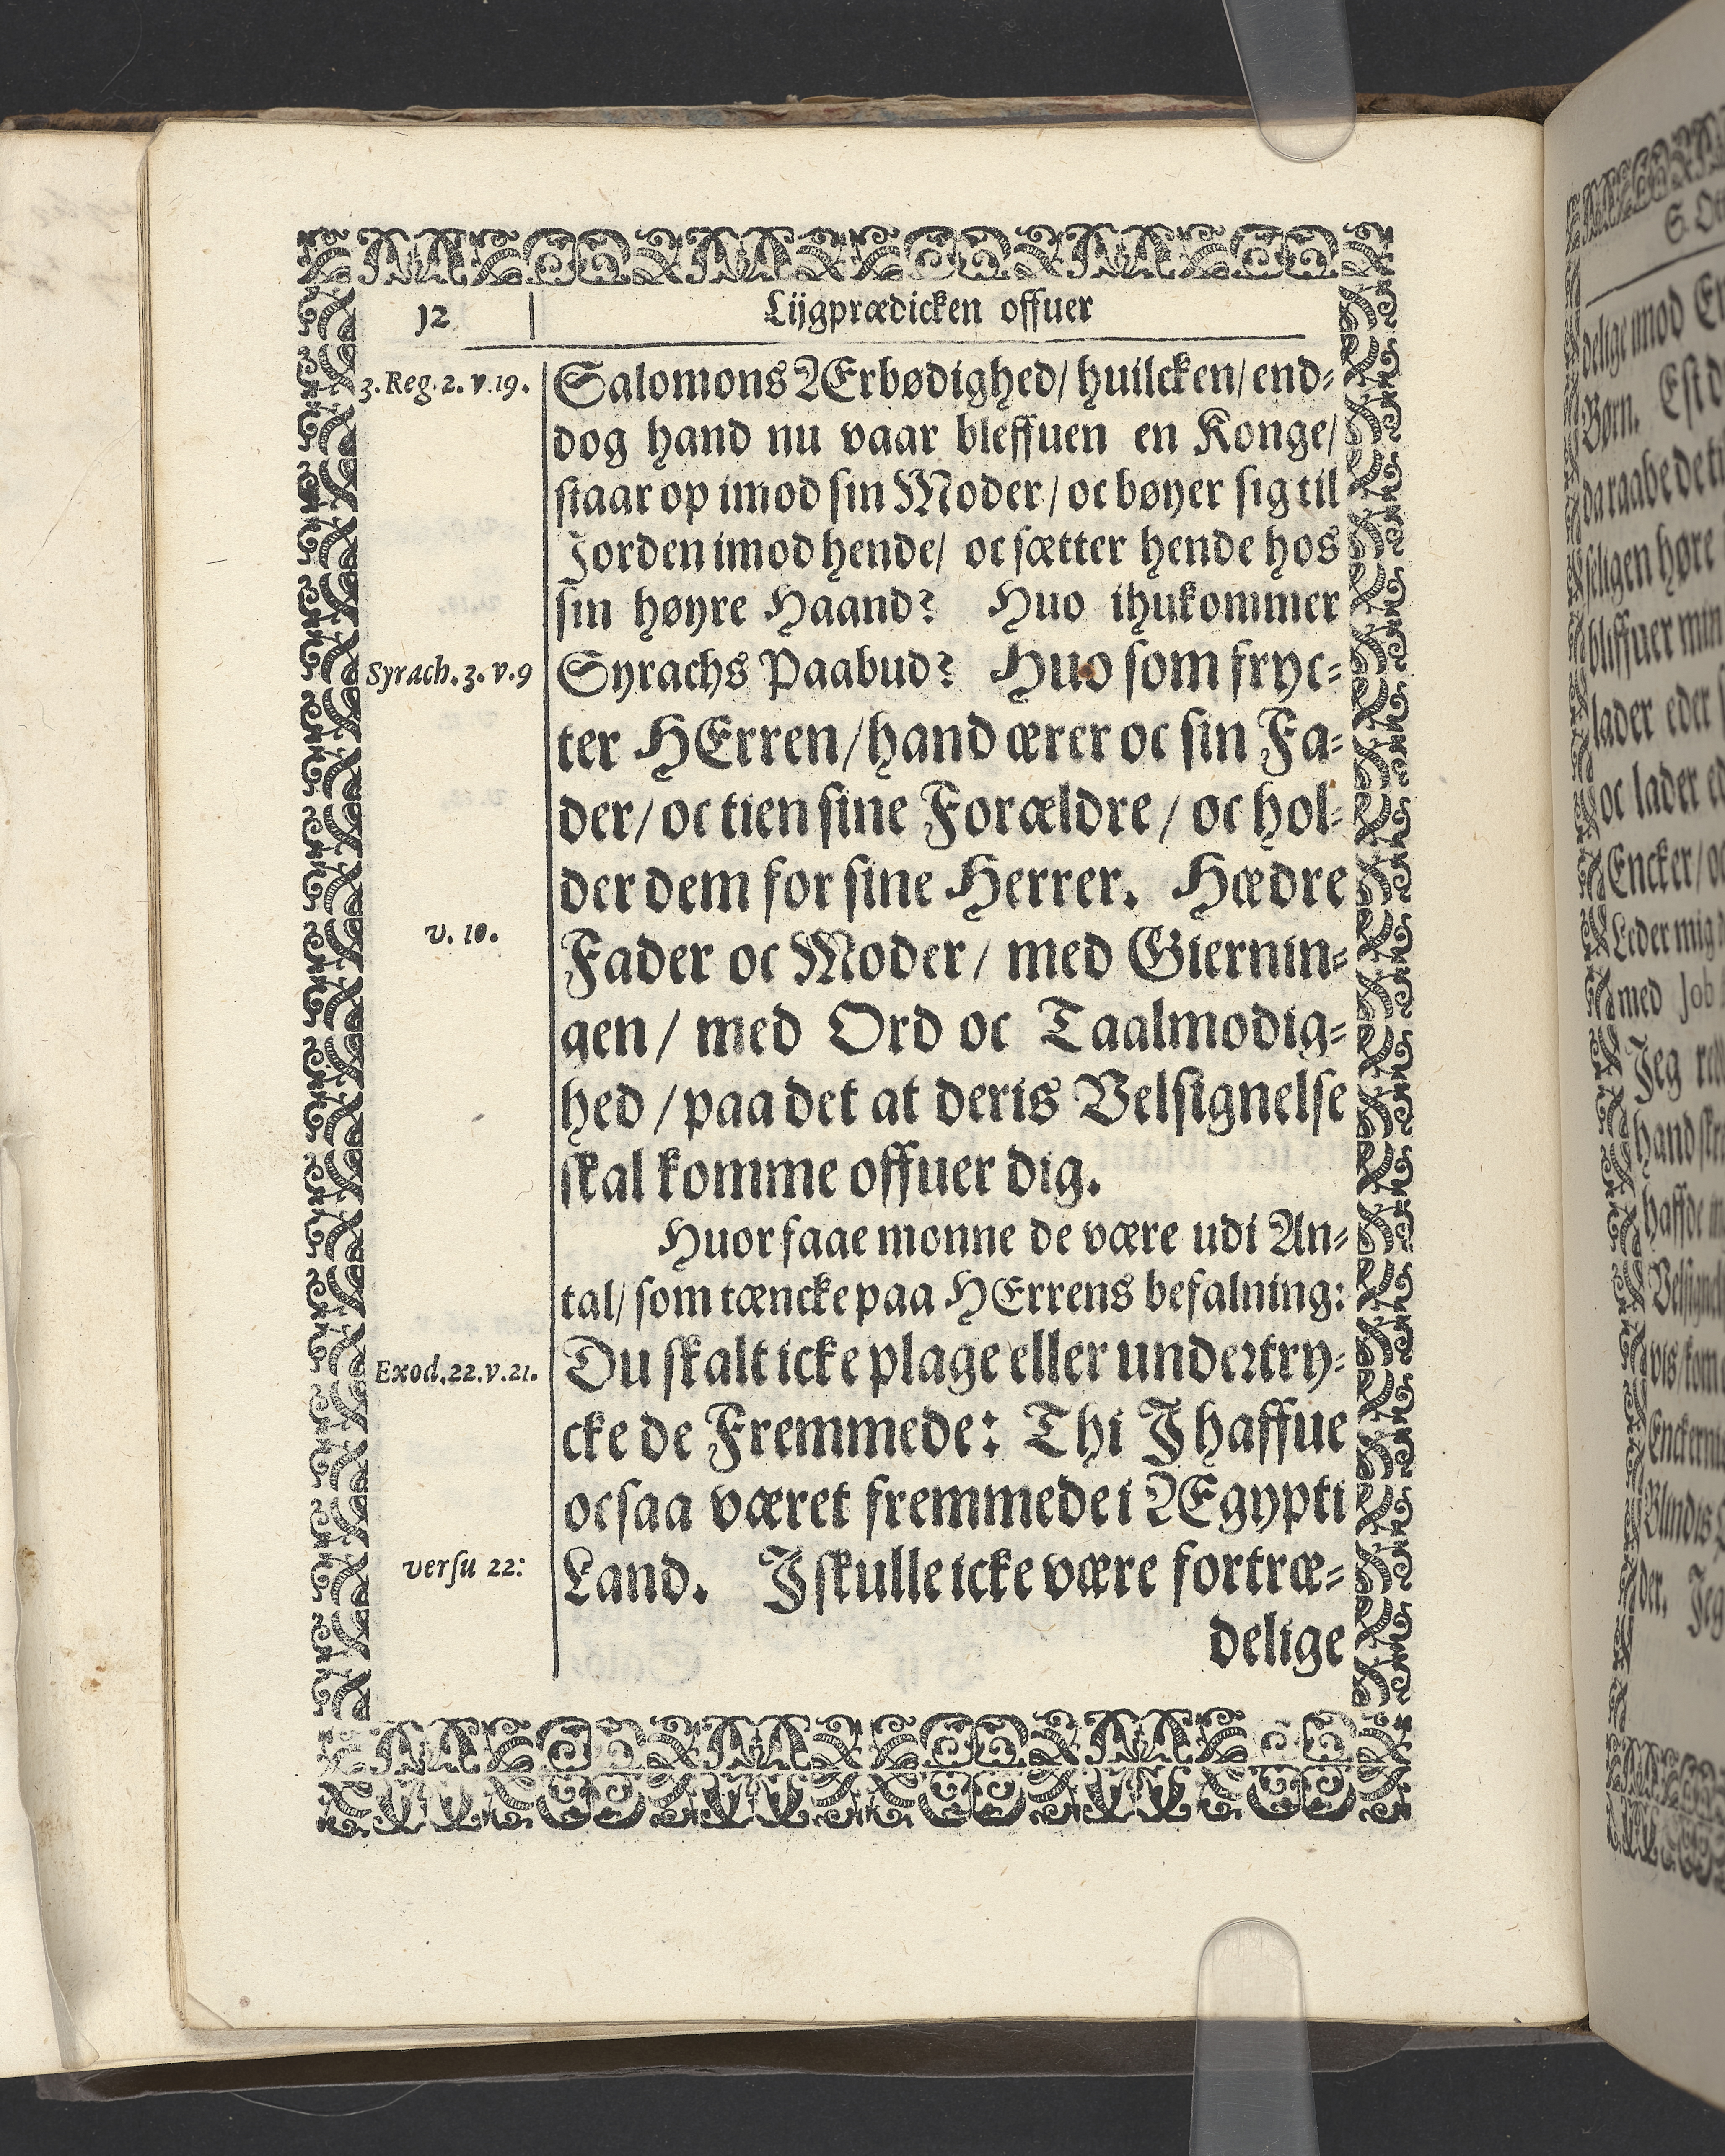 12
Lijgprædicken offuer
3. Reg. 2. v. 19.
Salomons Ærbødighed/ huilcken/ end⸗
dog hand nu vaar bleffuen en Konge/
staar op imod sin Moder/ oc bøyer sig til
Jorden imod hende/ oc sætter hende hos
sin høyre Haand? Huo ihukommer
Syrach. 3. v. 9
Syrachs Paabud? Huo som fryc⸗
ter HErren/ hand ærer oc sin Fa⸗
der/ oc tien sine Forældre/ oc hol⸗
der dem for sine Herrer. Hædre
v. 10.
Fader oc Moder/ med Giernin⸗
gen/ med Ord oc Taalmodig⸗
hed/ paa det at deris Velsignelse
skal komme offuer dig.
Huor faae monne de være udi An⸗
tal/ som tæncke paa HErrens befalning:
Exod. 22. v. 21.
Du skalt icke plage eller undertry⸗
cke de Fremmede: Thi J haffue
ocsaa været fremmede i Ægypti
versu 22:
Land. J skulle icke være fortræ⸗
delige